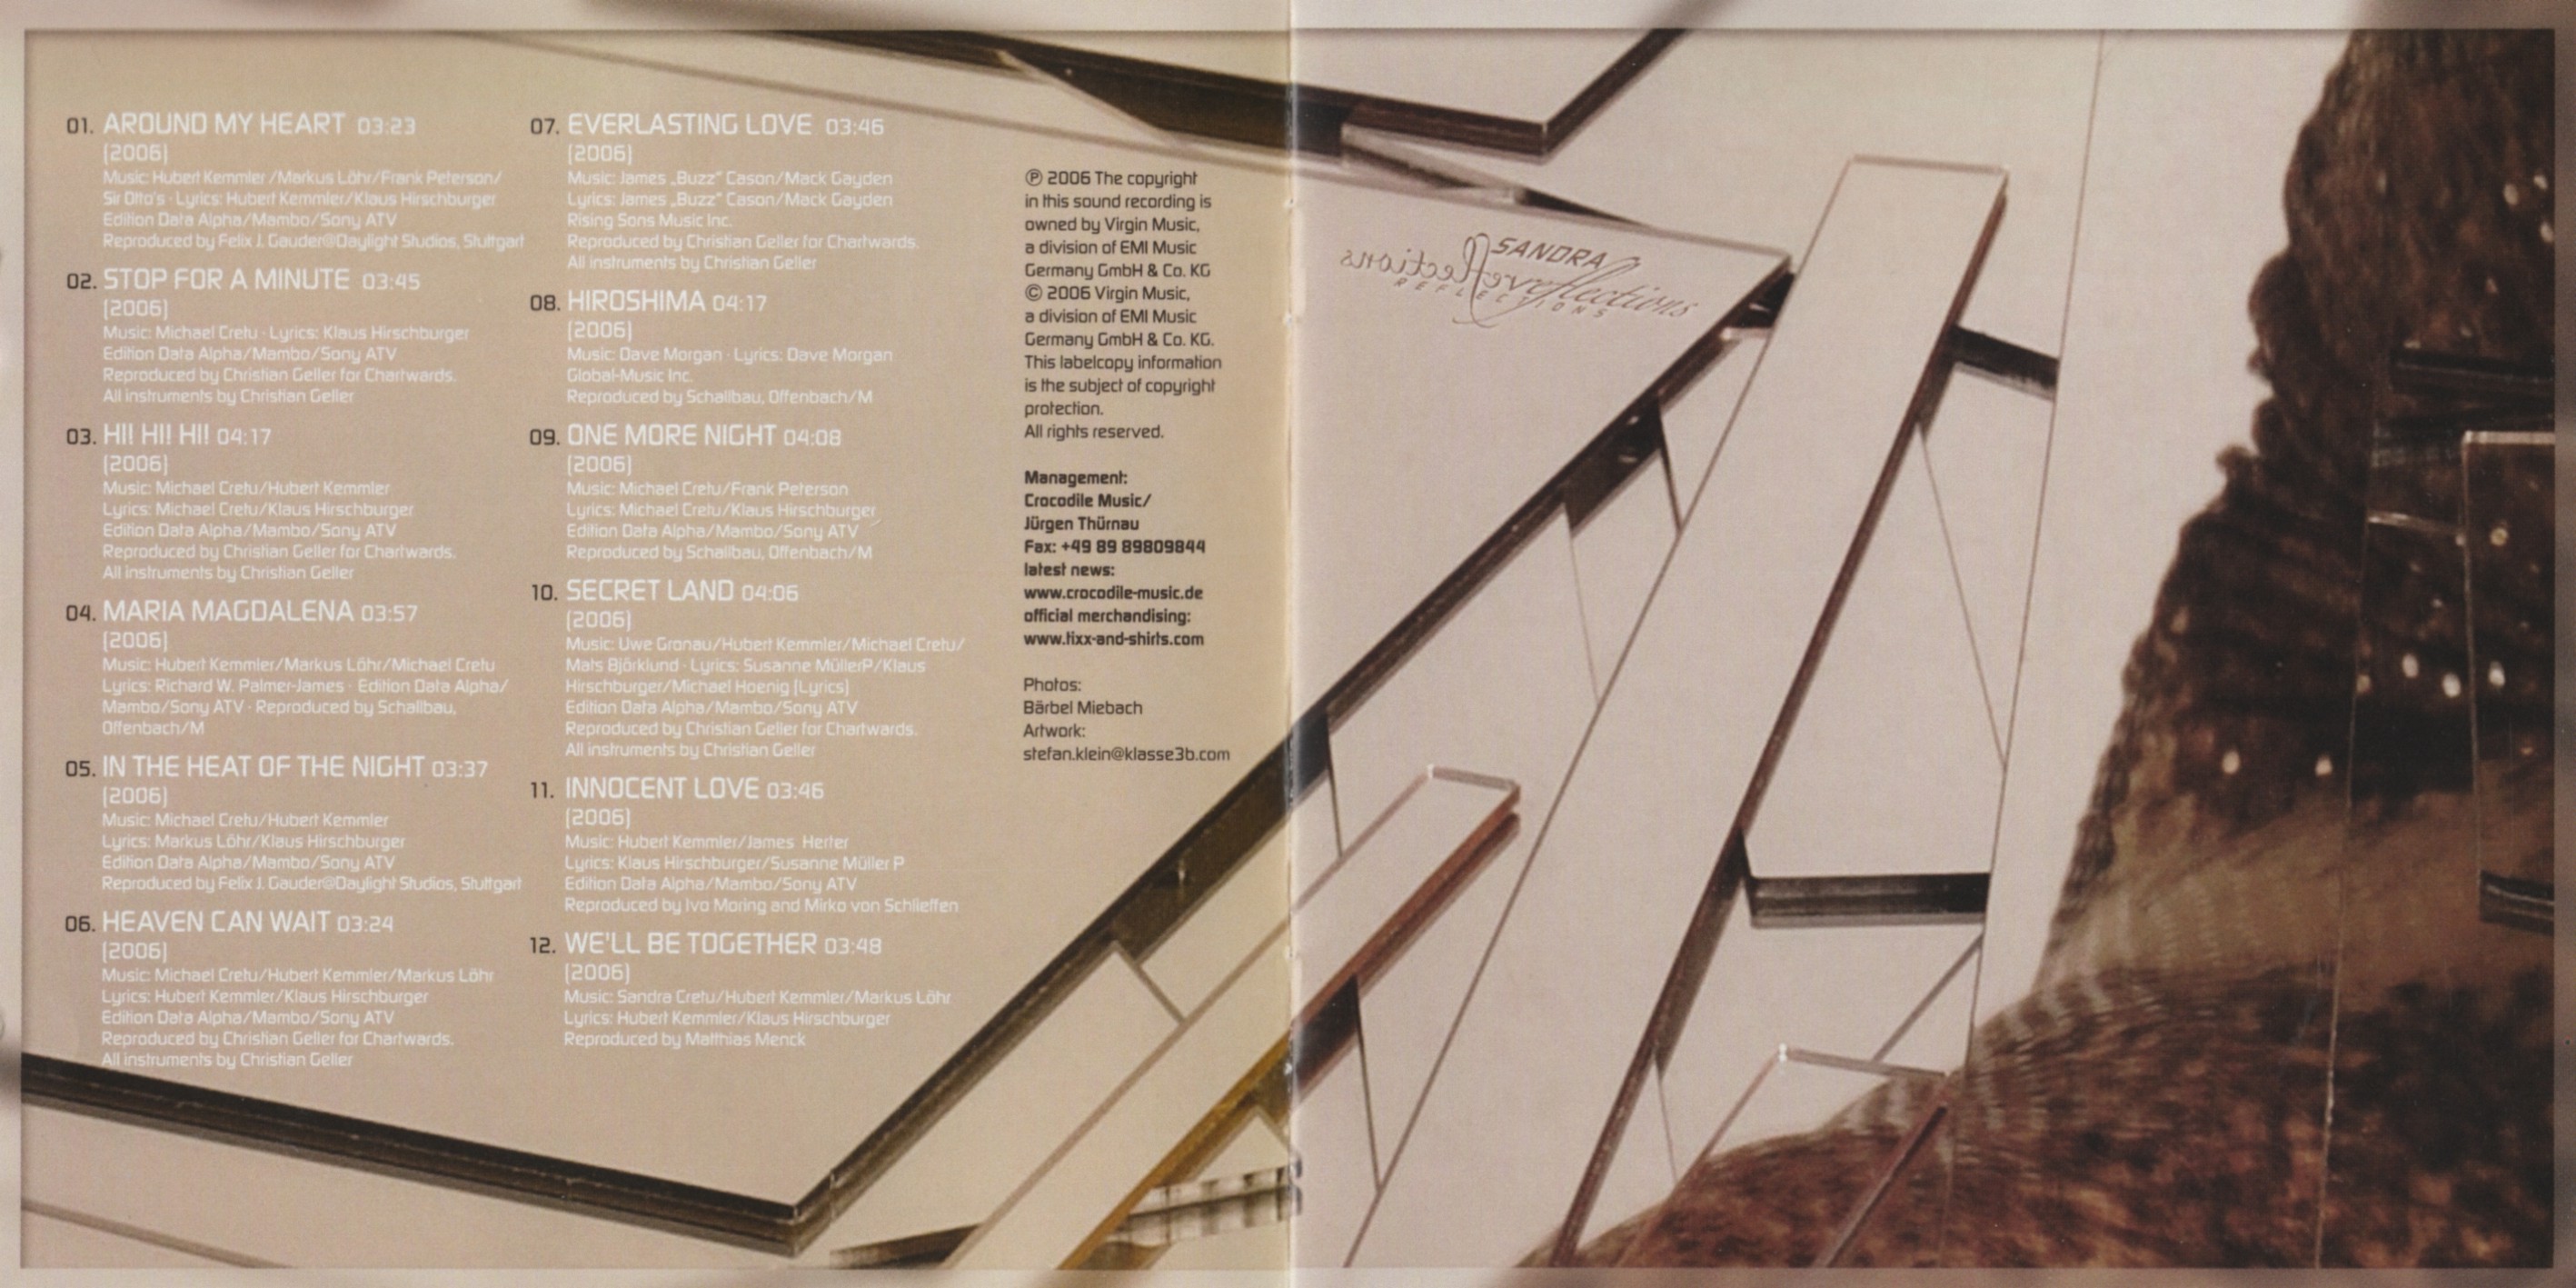 01. AROUND MY HEART 03:23
(2006)
Music: Hubert Kemmler /Markus Löhr/Frank Peterson/
Sir Otto's · Lyrics: Hubert Kemmler/Klaus Hirschburger
Edition Data Alpha/Mambo/Sony ATV
Reproduced by Felix J. Gauder@Daylight Studios, Stuttgart
02. STOP FOR A MINUTE 03:45
(2006)
Music: Michael Cretu · Lyrics: Klaus Hirschburger
Edition Data Alpha/Mambo/Sony ATV
Reproduced by Christian Geller for Chartwards.
All instruments by Christian Geller
03. HI! HI! HI! 04:17
(2006)
Music: Michael Cretu/Hubert Kemmler
Lyrics: Michael Cretu/Klaus Hirschburger
Edition Data Alpha/Mambo/Sony ATV
Reproduced by Christian Geller for Chartwards.
All instruments by Christian Geller
04. MARIA MAGDALENA 03:57
(2006)
Music: Hubert Kemmler/Markus Löhr/Michael Cretu
Lyrics: Richard W. Palmer-James · Edition Data Alpha/
Mambo/Sony ATV · Reproduced by Schallbau,
Offenbach/M
05. IN THE HEAT OF THE NIGHT 03:37
(2006)
Music: Michael Cretu/Hubert Kemmler
Lyrics: Markus Löhr/Klaus Hirschburger
Edition Data Alpha/Mambo/Sony ATV
Reproduced by Felix J. Gauder@Daylight Studios, Stuttgart
06. HEAVEN CAN WAIT 03:24
(2006)
Music: Michael Cretu/Hubert Kemmler/Markus Löhr
Lyrics: Hubert Kemmler/Klaus Hirschburger
Edition Data Alpha/Mambo/Sony ATV
Reproduced by Christian Geller for Chartwards.
All instruments by Christian Geller
07. EVERLASTING LOVE 03:46
(2006)
Music: James „Buzz“ Cason/Mack Gayden
Lyrics: James „Buzz“ Cason/Mack Gayden
Rising Sons Music Inc.
Reproduced by Christian Geller for Chartwards.
All instruments by Christian Geller
08. HIROSHIMA 04:17
(2006)
Music: Dave Morgan · Lyrics: Dave Morgan
Global-Music Inc.
Reproduced by Schallbau, Offenbach/M
09. ONE MORE NIGHT 04:08
(2006)
Music: Michael Cretu/Frank Peterson
Lyrics: Michael Cretu/Klaus Hirschburger
Edition Data Alpha/Mambo/Sony ATV
Reproduced by Schallbau, Offenbach/M
10. SECRET LAND 04:06
(2006)
Music: Uwe Gronau/Hubert Kemmler/Michael Cretu/
Mats Björklund · Lyrics: Susanne MüllerP/Klaus
Hirschburger/Michael Hoenig (Lyrics)
Edition Data Alpha/Mambo/Sony ATV
Reproduced by Christian Geller for Chartwards.
All instruments by Christian Geller
11. INNOCENT LOVE 03:46
(2006)
Music: Hubert Kemmler/James Herter
Lyrics: Klaus Hirschburger/Susanne Müller P
Edition Data Alpha/Mambo/Sony ATV
Reproduced by Ivo Moring and Mirko von Schlieffen
12. WE'LL BE TOGETHER 03:48
(2006)
Music: Sandra Cretu/Hubert Kemmler/Markus Löhr
Lyrics: Hubert Kemmler/Klaus Hirschburger
Reproduced by Matthias Menck
℗ 2006 The copyright
in this sound recording is
owned by Virgin Music,
a division of EMI Music
Germany GmbH & Co. KG
© 2006 Virgin Music,
a division of EMI Music
Germany GmbH & Co. KG.
This labelcopy information
is the subject of copyright
protection.
All rights reserved.
Management:
Crocodile Music/
Jürgen Thürnau
Fax: +49 89 89809844
latest news:
www.crocodile-music.de
official merchandising:
www.tixx-and-shirts.com
Photos:
Bärbel Miebach
Artwork:
stefan.klein@klasse3b.com
SANDRA
reflections reflections
REFLECTIONS